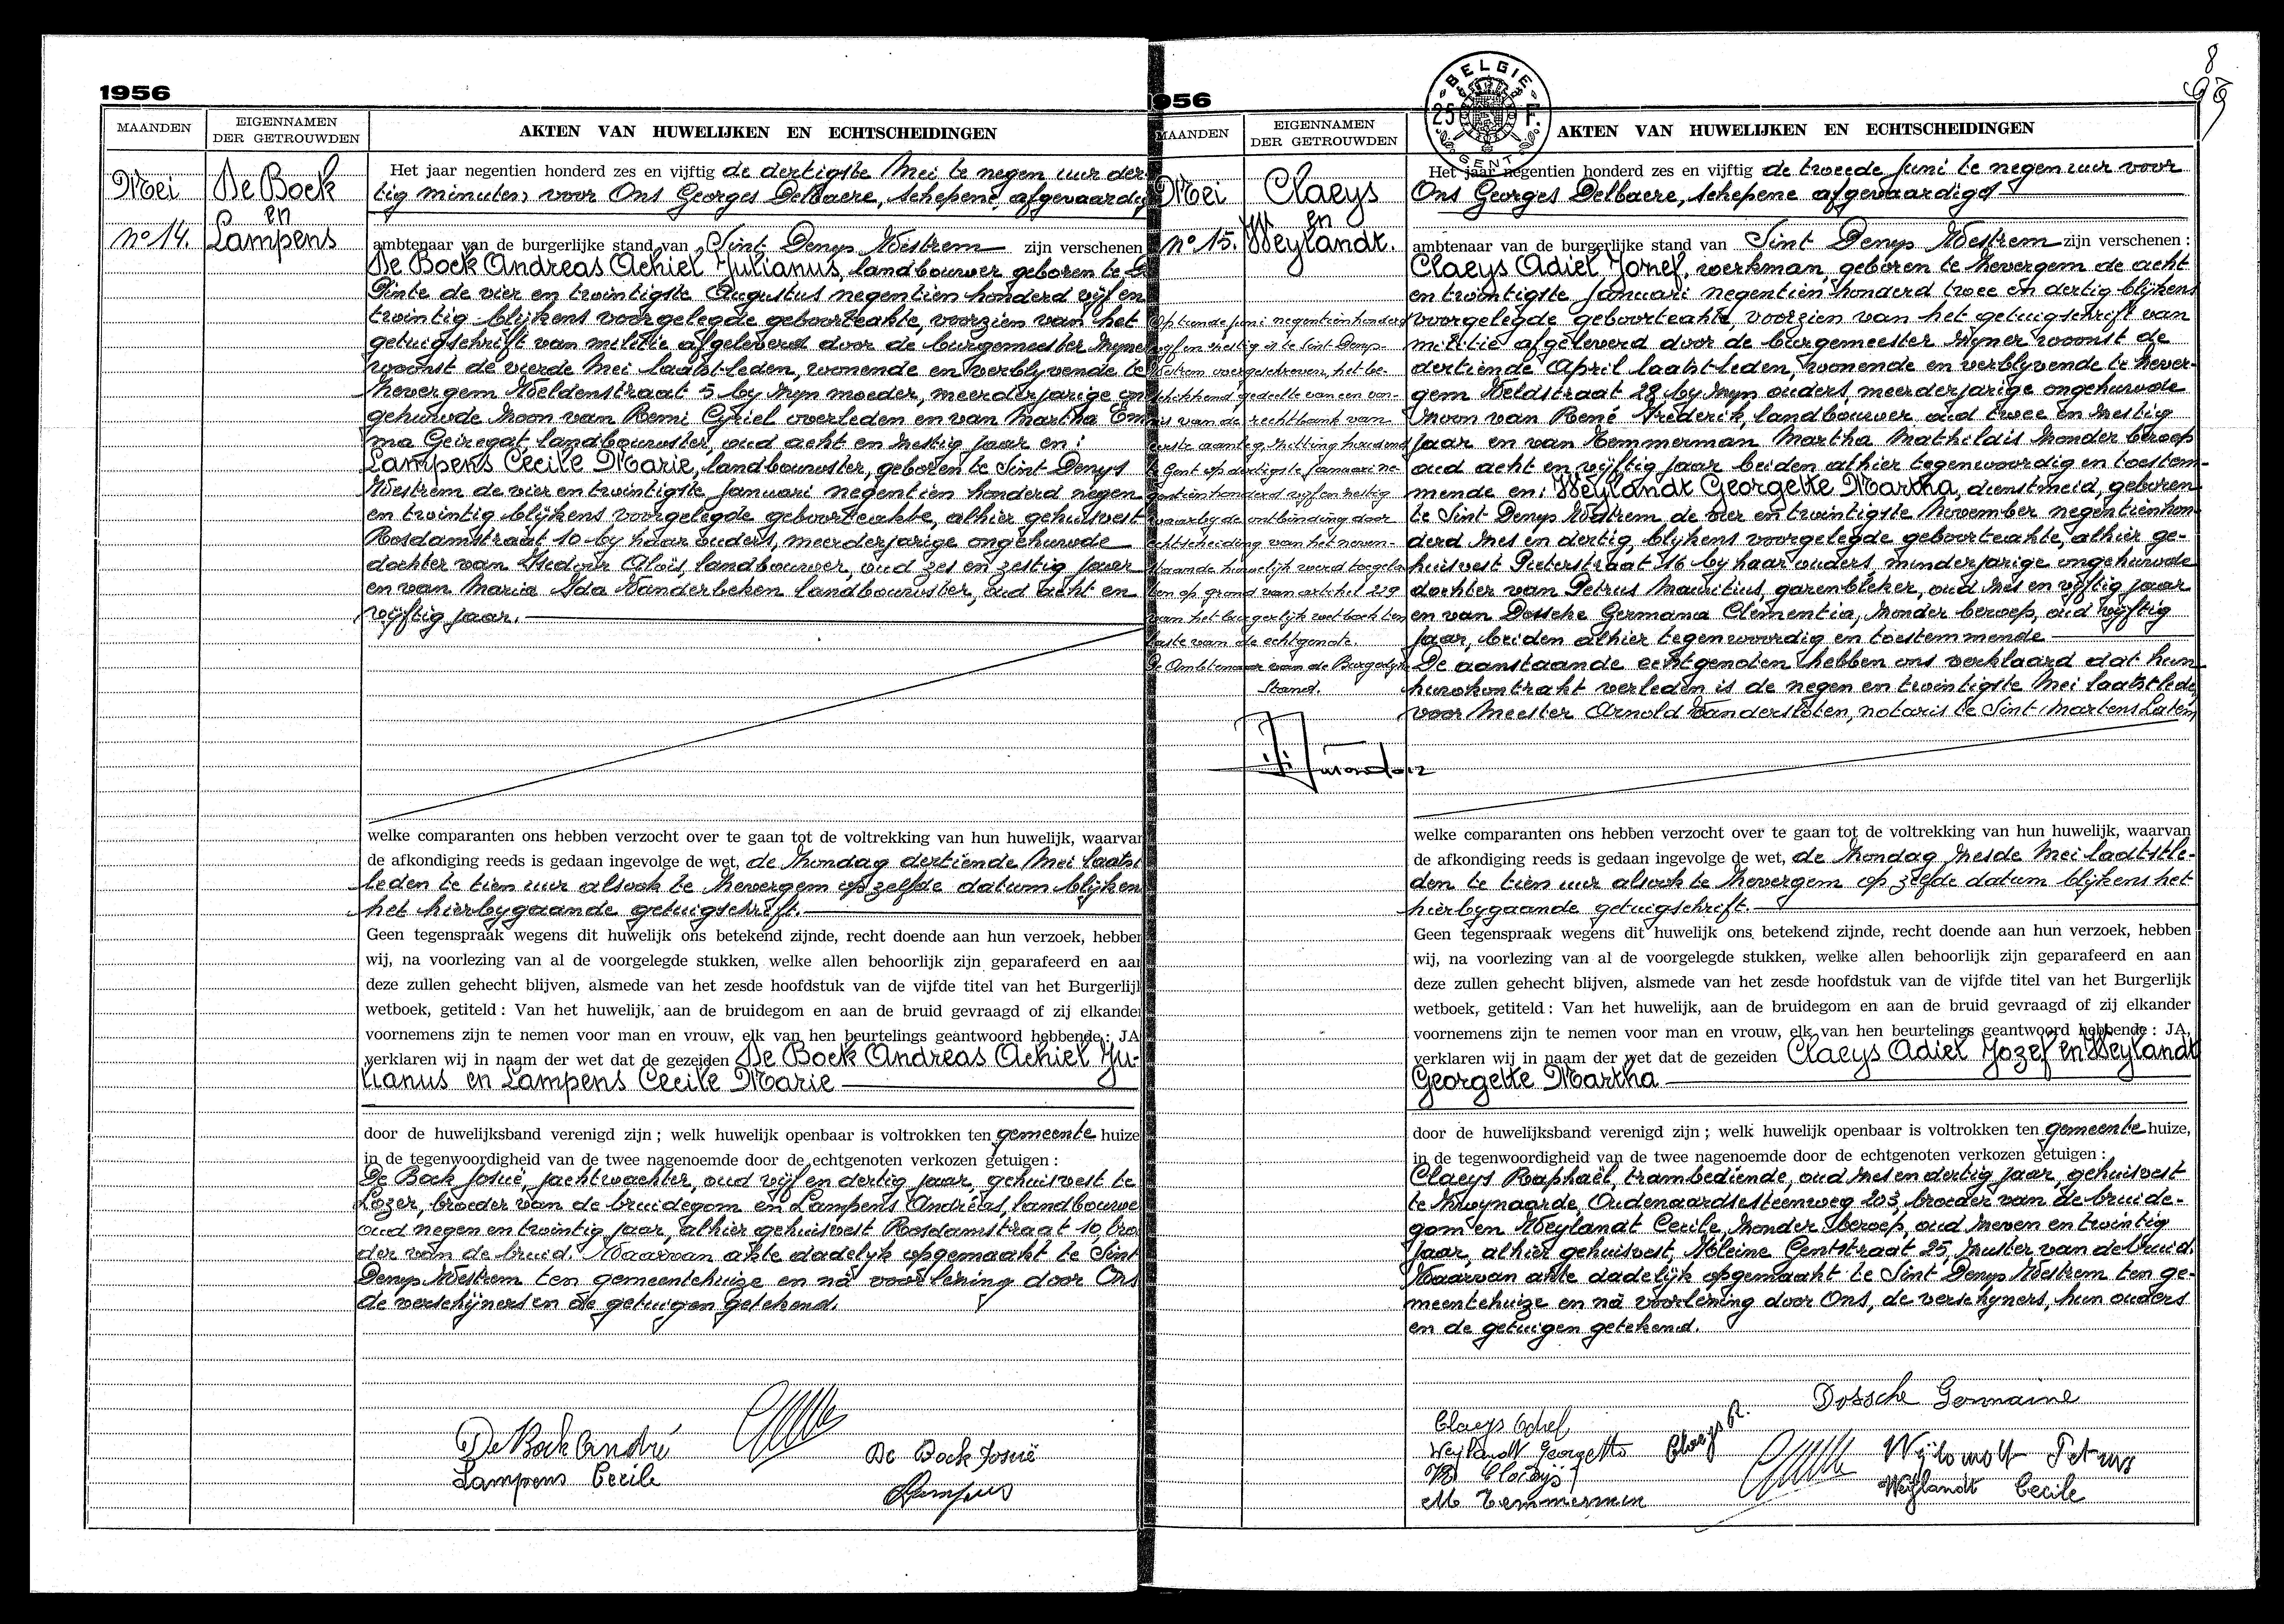 1956
MAANDEN
EIGENNAMEN
DER GETROUWDEN
AKTEN VAN HUWELIJKEN EN ECHTSCHEIDINGEN
Mei
De Bock
en
no 14.
Lampens
Het jaar negentien honderd zes en vijftig de dertigste Mei te negen uur der
tig minuten, voor Ons Georges Delbaere, schepene, afgevaardig
ambtenaar van de burgerlijke stand van Sint Denys Westrem zijn verschenen
De Bock Andreas Achiel Julianus, landbouwer geboren te
Pinte de vier en twintigste Augustus negentien honderd vijf en
twintig blijkens voorgelegde geboorteakte, voorzien van het
getuigschrift van militie afgeleverd door de burgemeester zyner
woonst de vierde Mei laatstleden, wonende en verblyvende te
Zevergem Weldenstraat 5 by zyn moeder, meerderjarige on
gehuwde zoon van Remi Cyriel overleden en van Martha Em
ma Geiregat, landbouwster, oud acht en zestig jaar en:
Lampens Cecile Marie, landbouwster, geboren te Sint Denys
Westrem de vier en twintigste Januari negentien honderd negen
en twintig blijkens voorgelegde geboorteakte, alhier gehuisvest
Rosdamstraat 10 by haar ouders, meerderjarige ongehuwde
dochter van Medour Aloïs, landbouwer, oud zes en zestig jaar
en van Maria Ida Vanderbeken landbouwster, oud acht en
vijftig jaar.
welke comparanten ons hebben verzocht over te gaan tot de voltrekking van hun huwelijk, waarvan
de afkondiging reeds is gedaan ingevolge de wet, de zondag dertiende Mei laatst
leden te tien uur alsook te Zevergem op zelfde datum blijken
het hierbygaande getuigschrift.
Geen tegenspraak wegens dit huwelijk ons betekend zijnde, recht doende aan hun verzoek, hebben
wij, na voorlezing van al de voorgelegde stukken, welke allen behoorlijk zijn geparafeerd en aan
deze zullen gehecht blijven, alsmede van het zesde hoofdstuk van de vijfde titel van het Burgerlijk
wetboek, getiteld : Van het huwelijk, aan de bruidegom en aan de bruid gevraagd of zij elkander
voornemens zijn te nemen voor man en vrouw, elk van hen beurtelings geantwoord hebbende : JA
verklaren wij in naam der wet dat de gezeiden De Bock Andreas Achiel Ju-
lianus en Lampens Cecile Marie
door de huwelijksband verenigd zijn ; welk huwelijk openbaar is voltrokken ten gemeente huize
in de tegenwoordigheid van de twee nagenoemde door de echtgenoten verkozen getuigen :
De Bock Josuë, jachtwachter, oud vijf en dertig jaar, gehuisvest te
Lozer, broeder van de bruidegom en Lampens Andréas, landbouwe
oud negen en twintig jaar, alhier gehuisvest Rosdamstraat 10, bro
der van de bruid. Waarvan akte dadelyk opgemaakt te Sint
Denys Westrem ten gemeentehuize en nà voorlezing door Ons
de verschijners en de getuigen getekend.
De Bock André
Lampens Cecile
De Bock Josuë
Lampens
1956
8
MAANDEN
EIGENNAMEN
DER GETROUWDEN
BELGIE
25 F.
GENT
AKTEN VAN HUWELIJKEN EN ECHTSCHEIDINGEN
Mei
Claeys
en
no 15.
Weylandt.
Op tiende juni negentienhonderd
vyf en zestig is te Sint Denys
Westrem overgeschreven, het be-
schikkend gedeelte van een von-
nis van de rechtbank van
eerste aanleg, zitting houdend
te Gent op dertigste Januari ne
gentienhonderd vyf en zestig
waarby de ontbinding door
echtscheiding van het neven-
staande huwelijk werd toegela
ten op grond van artikel 229
van het burgerlijk wetboek ten
laste van de echtgenote.
De Ambtenaar van de Burgerlyke
Stand.
Het jaar negentien honderd zes en vijftig de tweede Juni te negen uur voor
Ons Georges Delbaere, schepene afgevaardigd
ambtenaar van de burgerlijke stand van Sint Denys Westrem zijn verschenen :
Claeys Adiel Jozef, werkman, geboren te Zevergem de acht
en twintigste Januari negentien honderd twee en dertig blijkens
voorgelegde geboorteakte, voorzien van het getuigschrift van
militie afgeleverd door de burgemeester zyner woonst de
dertiende April laatstleden, wonende en verblyvende te Zever-
gem Veldstraat 28 by zyn ouders, meerderjarige ongehuwde
zoon van René Frederik, landbouwer, oud twee en zestig
jaar en van Temmerman Martha Mathildis zonder beroep
oud acht en vijftig jaar beiden alhier tegenwoordig en toestem-
mende en: Weylandt Georgette Martha, dienstmeid, geboren
te Sint Denys Westrem de vier en twintigste November negentienhon-
derd zes en dertig, blijkens voorgelegde geboorteakte, alhier ge-
huisvest Pieterstraat 16 by haar ouders, minderjarige ongehuwde
dochter van Petrus Mauritius, garenbleker, oud zes en vyftig jaar
en van Dossche Germana Clementia, zonder beroep, oud vyftig
jaar, beiden alhier tegenwoordig en toestemmende
De aanstaande echtgenoten hebben ons verklaard dat hun
huwkontrakt verleden is de negen en twintigste Mei laatstlede
voor Meester Arnold Vandersloten, notaris te Sint Martens Latem
welke comparanten ons hebben verzocht over te gaan tot de voltrekking van hun huwelijk, waarvan
de afkondiging reeds is gedaan ingevolge de wet, de zondag zesde Mei laatstle-
den te tien uur alsook te Zevergem op zelfde datum blijkens het
hierbygaande getuigschrift.
Geen tegenspraak wegens dit huwelijk ons betekend zijnde, recht doende aan hun verzoek, hebben
wij, na voorlezing van al de voorgelegde stukken, welke allen behoorlijk zijn geparafeerd en aan
deze zullen gehecht blijven, alsmede van het zesde hoofdstuk van de vijfde titel van het Burgerlijk
wetboek, getiteld : Van het huwelijk, aan de bruidegom en aan de bruid gevraagd of zij elkander
voornemens zijn te nemen voor man en vrouw, elk van hen beurtelings geantwoord hebbende : JA,
verklaren wij in naam der wet dat de gezeiden Claeys Adiel Jozef en Weylandt
Georgette Martha
door de huwelijksband verenigd zijn ; welk huwelijk openbaar is voltrokken ten gemeente huize,
in de tegenwoordigheid van de twee nagenoemde door de echtgenoten verkozen getuigen :
Claeys Raphaël, trambediende, oud zes en dertig jaar, gehuisvest
te Zwynaarde, Oudenaardsesteenweg 203, broeder van de bruide-
gom en Weylandt Cecile, zonder beroep, oud zeven en twintig
jaar, alhier gehuisvest, Kleine Gentstraat 25, zuster van de bruid.
Waarvan akte dadelijk opgemaakt te Sint Denys Westrem ten ge-
meentehuize en nà voorlezing door Ons, de verschyners, hun ouders
en de getuigen getekend.
Dossche Germaine
Claeys Adiel
Claeys R.
Weylandt Georgette
R Claeys
M Temmerman
Weylandt Petrus
Weylandt Cecile